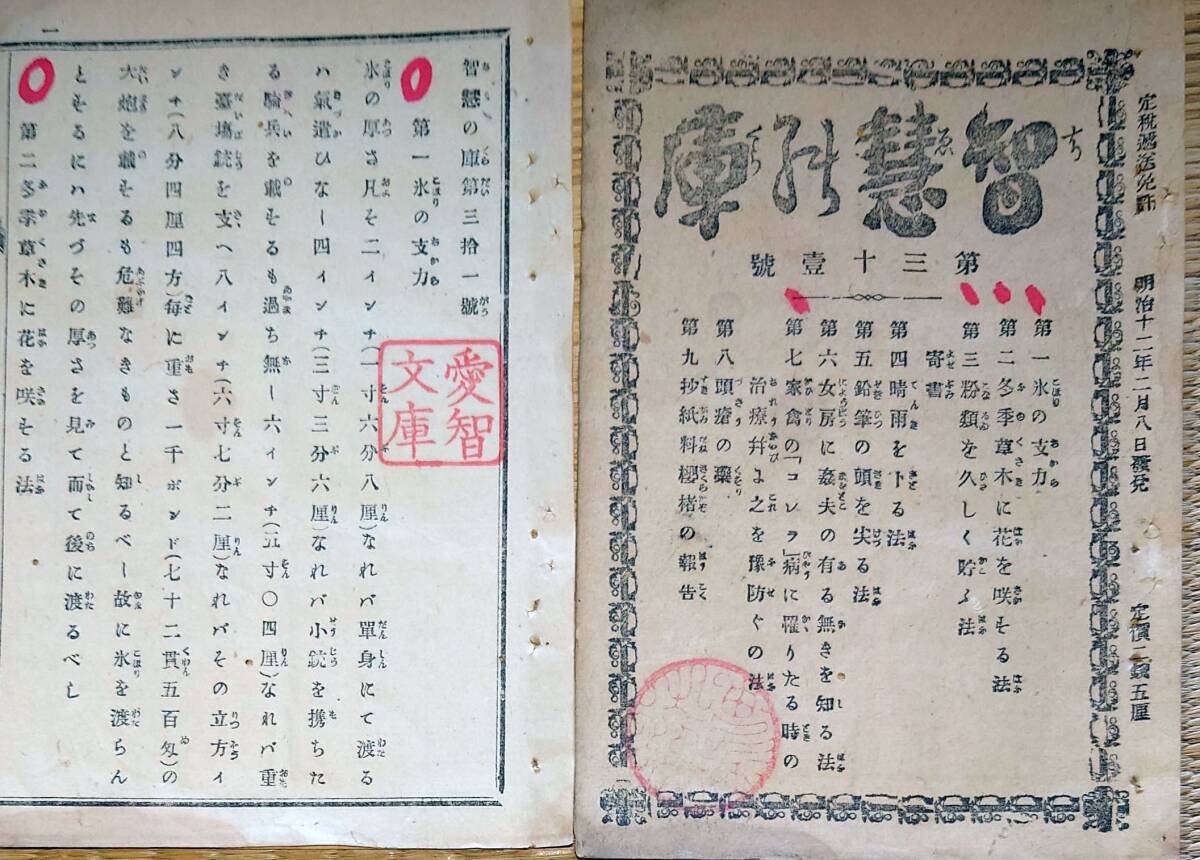 定税遞送免許　明治十二年二月八日發兌　定價二錢五厘
智慧の庫
第三十壹號
第一 氷の支力
第二 冬季草木に花を咲そる法
第三 粉類を久しく貯ふ法
寄書
第四 晴雨を卜る法
第五 鉛筆の頭を尖る法
第六 女房に姦夫の有る無きを知る法
第七 家禽の「コレラ」病に罹りたる時の
治療幷よ之を豫防ぐの法
第八 頭瘡の藥
第九 抄紙料楮の報告
一
智慧の庫第三拾一號
第一氷の支力
氷の厚さ凡そ二インチ(一寸六分八厘)なれバ單身にて渡る
ハ氣遣ひなー四インチ(三寸三分六厘)なれバ小銃を携ちた
る騎兵を載そるも過ち無ー六インチ(五寸〇四厘)なれバ重
き臺塲銃を支へ八インチ(六寸七分二厘)なれバその立方イ
ンチ(八分四厘四方)毎に重さ一千ポンド(七十二貫五百匁)の
大炮を載そるも危難なきものと知るべー故に氷を渡らん
とそるにハ先づその厚さを見て而して後に渡るべし
第二冬季草木に花を咲そる法
愛智
文庫